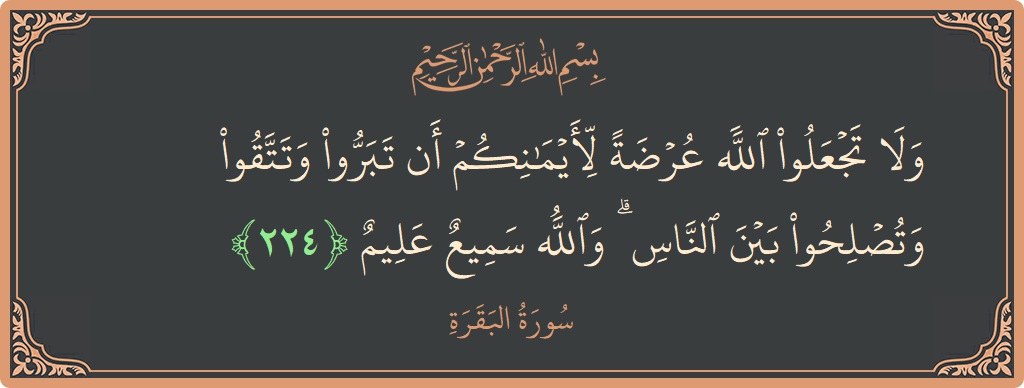 بِسْمِ اللهِ الرَّحْمٰنِ الرَّحِيْمِ
وَلَا تَجۡعَلُواْ ٱللَّهَ عُرۡضَةٗ لِّأَيۡمَٰنِكُمۡ أَن تَبَرُّواْ وَتَتَّقُواْ
وَتُصۡلِحُواْ بَيۡنَ ٱلنَّاسِۚ وَٱللَّهُ سَمِيعٌ عَلِيمٞ ﴿٢٢٤﴾
سُورَةُ البَقَرَةِ